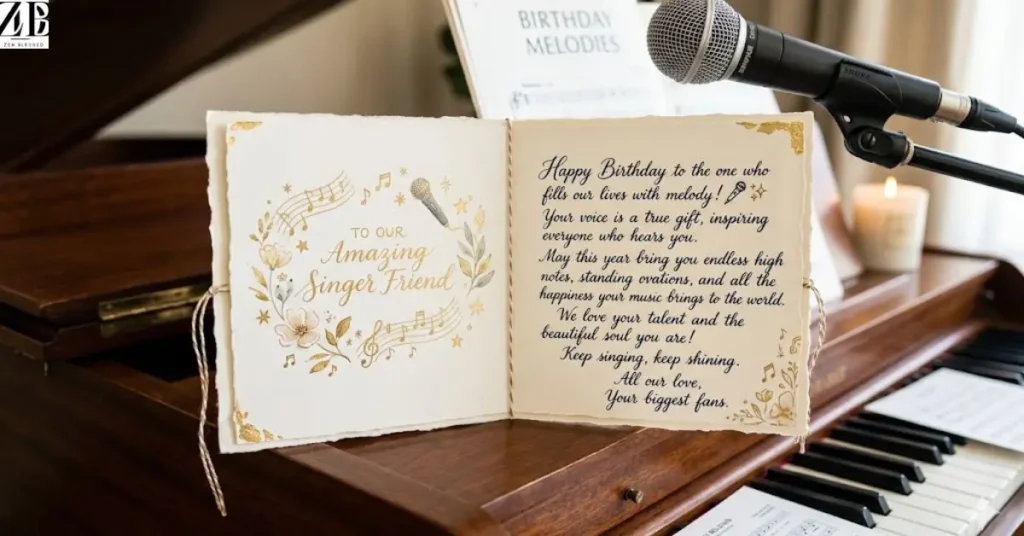 ZEN BLESSED
BIRTHDAY
MELODIES
TO OUR
Amazing
Singer Friend
Happy Birthday to the one who
fills our lives with melody!
Your voice is a true gift, inspiring
everyone who hears you.
May this year bring you endless high
notes, standing ovations, and all the
happiness your music brings to the world.
We love your talent and the
beautiful soul you are!
Keep singing, keep shining.
All our love,
Your biggest fans.